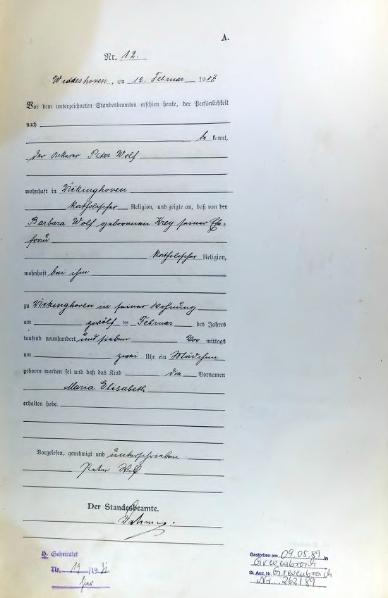 A.
Nr. 12.
am Februar 19
Vor dem unterzeichneten Standesbeamten erschien heute, der Persönlichkeit
nach
be kannt,
der Ackerer Peter Wolf
wohnhaft in Vickinghoven
katholischer Religion, und zeigte an, daß von der
Barbara Wolf geborenen Krey seiner Ehe-
frau
katholischer Religion,
wohnhaft bei ihm
zu Vickinghoven in seiner Wohnung
am zwölf ten Februar des Jahres
tausend neunhundert und sieben Vor mittags
um zwei Uhr ein Mädchen
geboren worden sei und daß das Kind die Vornamen
Maria Elisabeth
erhalten habe.
Vorgelesen, genehmigt und unterschrieben
Peter Wolf
Der Standesbeamte.
Nr. 19
Gestorben am 09.05.89 in
Grevenbroich
St. Amt Grevenbroich
Nr. 262/89